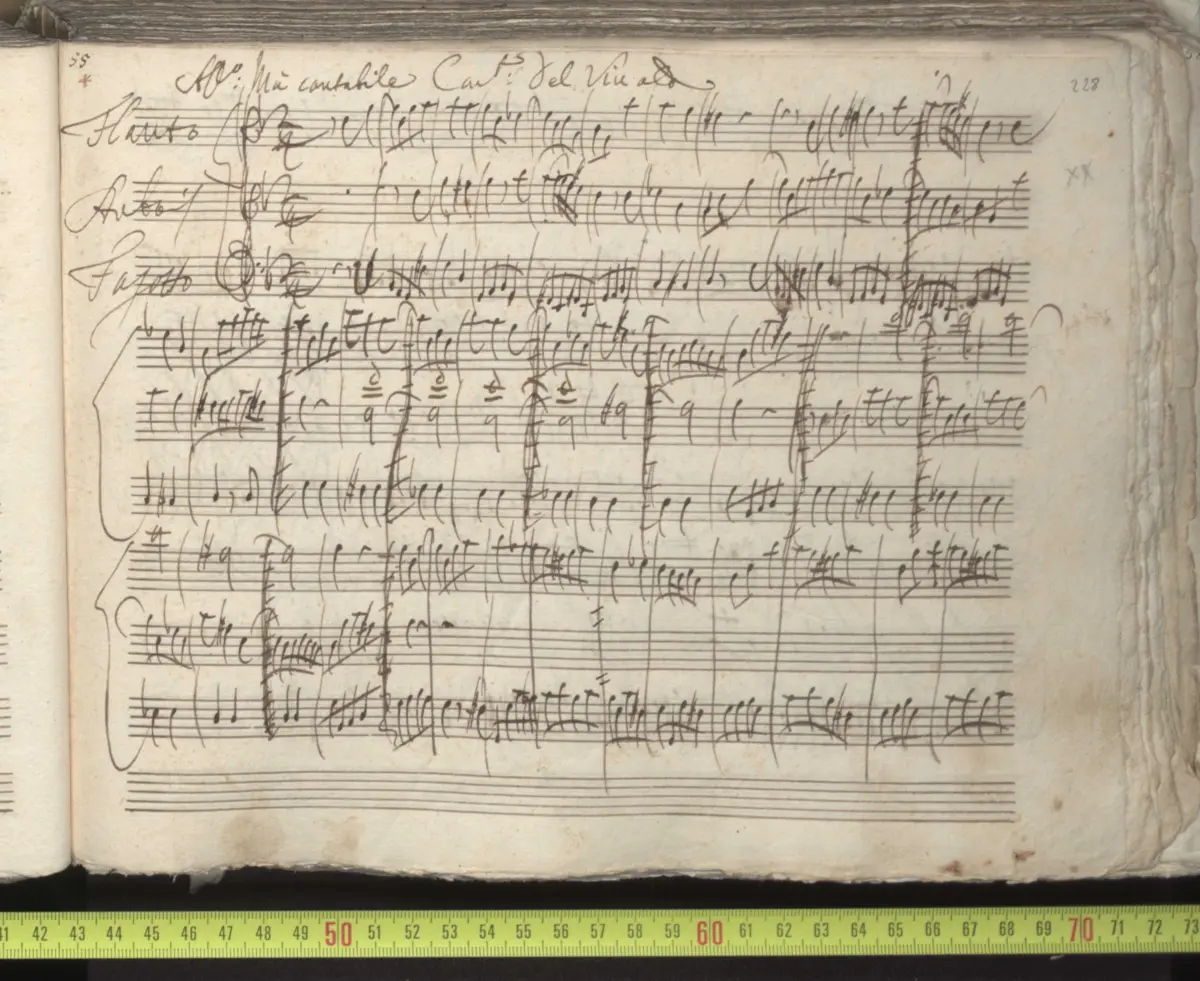 55 228
All.º: Mà cantabile Con.to: Del Viualdi
Flauto
Aubois
Fagotto
41 42 43 44 45 46 47 48 49 50 51 52 53 54 55 56 57 58 59 60 61 62 63 64 65 66 67 68 69 70 71 72 73